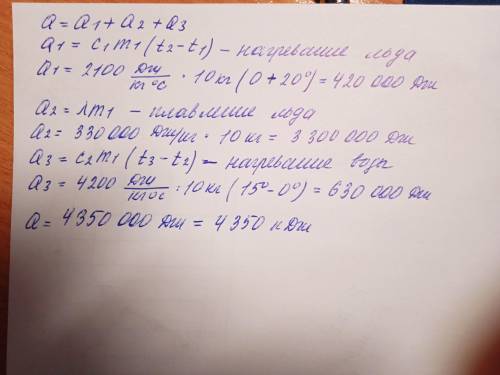 Q = Q1 + Q2 + Q3
Q1 = c1 m1 (t2 - t1) - нагревание льда
Q1 = 2100 Дж/кг°С · 10 кг (0 + 20°) = 420 000 Дж
Q2 = λm1 - плавление льда
Q2 = 330 000 Дж/кг · 10 кг = 3 300 000 Дж
Q3 = c2 m1 (t3 - t2) - нагревание воды
Q3 = 4200 Дж/кг°С · 10 кг (15° - 0°) = 630 000 Дж
Q = 4350 000 Дж = 4350 кДж